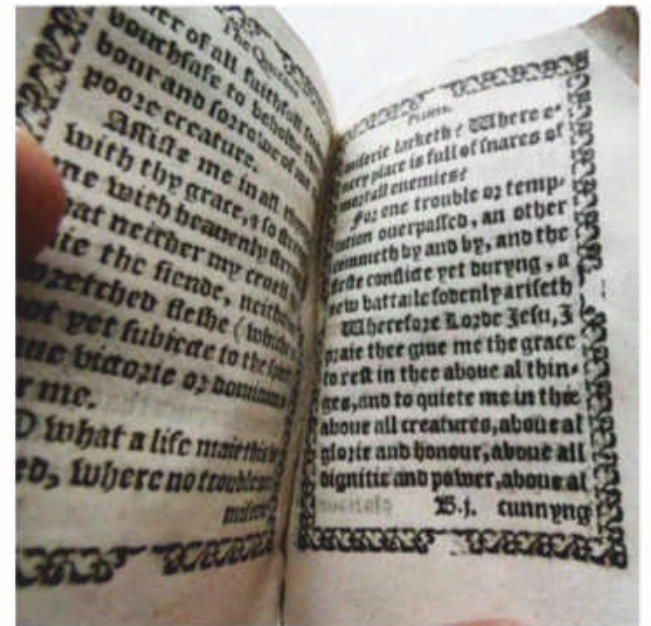 The
er of all faithfull
vouchsafe to beholde
bour and sorrowe of
poore creature.
Assiste me in all
with thy grace, & so
me with heauenly
at neither my cruell
ie the fiende, neither
wretched fleshe (
ot yet subiecte to the
ue victorie or
r me.
O what a life maie this
ed, where no trouble
miserie lacketh? Where e-
uery place is full of snares of
mortall enemies?
For one trouble or temp-
tation ouerpassed, an other
commeth by and by, and the
firste conflicte yet duryng, a
new battaile sodenly ariseth
Wherefore Lorde Jesu, I
praie thee giue me the grace
to rest in thee aboue al thin-
ges, and to quiete me in thee
aboue all creatures, aboue al
glorie and honour, aboue all
dignitie and power, aboue al
B.j. cunnyng